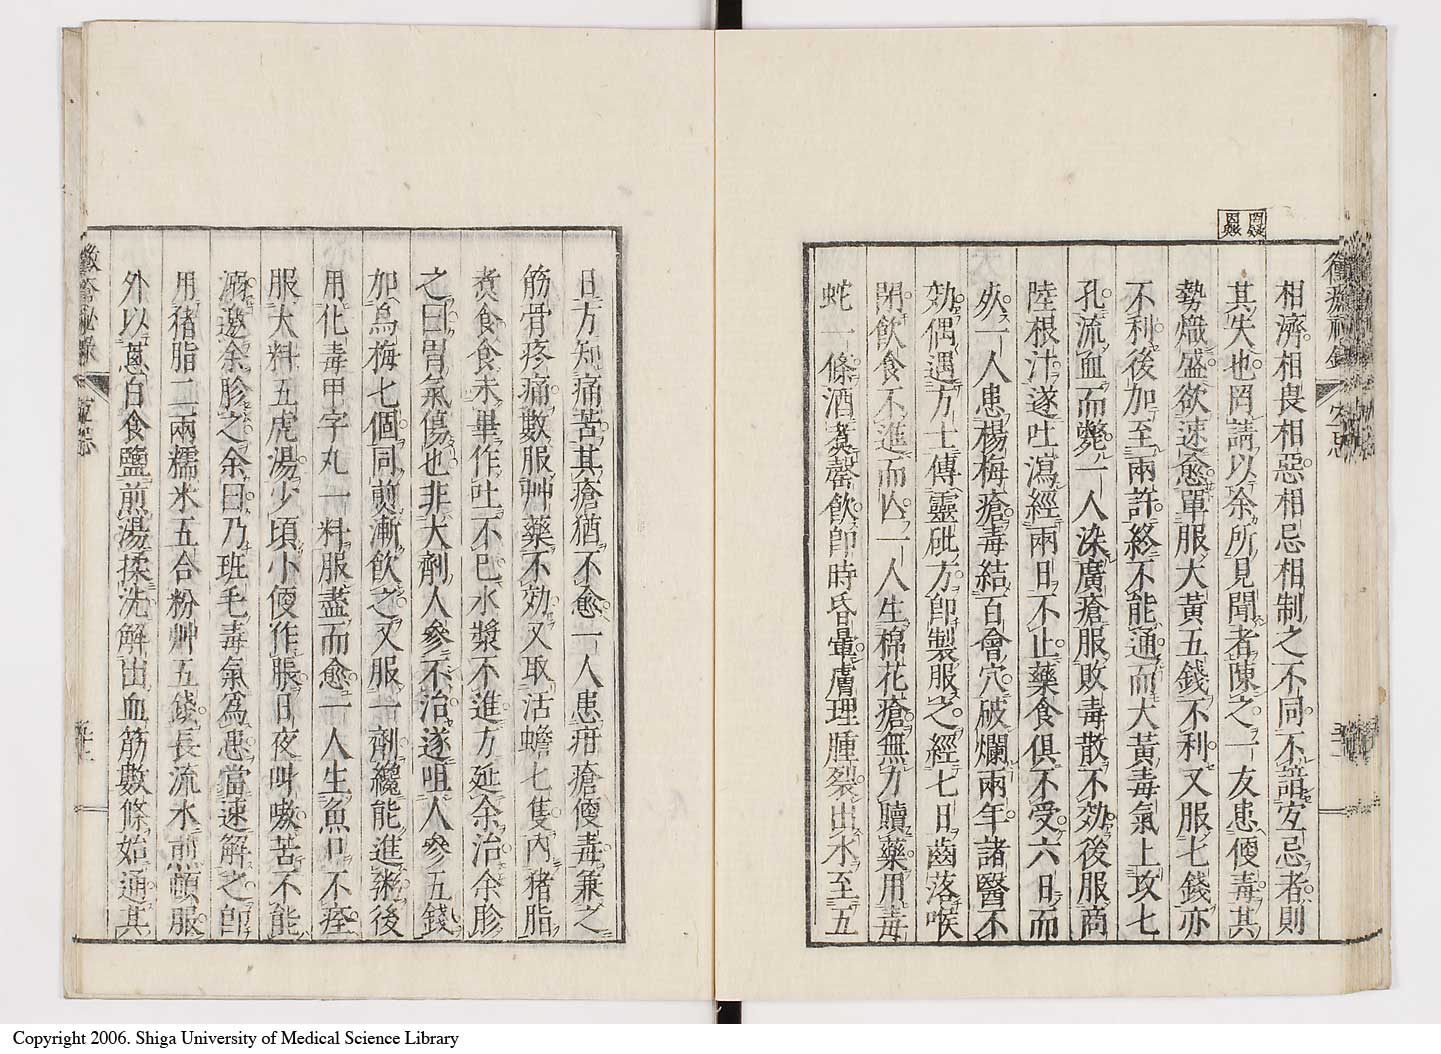 相濟相畏相惡相忌相制之不同不諳宐忌者則
其失也罔請以余所見聞者陳之一友患便毒其
勢熾盛欲速愈單服大黃五錢不利又服七錢亦
不利後加至兩許終不能通而大黃毒氣上攻七
孔流血而斃一人染廣瘡服敗毒散不効後服商
陸根汁遂吐瀉經兩日不止藥食俱不受六日而
死一人患楊梅瘡毒結百會穴破爛兩年諸醫不
効偶遇方士傳靈砒方卽製服之經七日齒落喉
閉飲食不進而亾一人生棉花瘡無力贖藥用毒
蛇一條酒煑罄飲卽時昏暈膚理腫裂出水至五
日方知痛苦其瘡猶不愈一人患疳瘡便毒兼之
筋骨疼痛數服艸藥不効又取活蟾七隻內豬脂
煑食食未畢作吐不巳水漿不進方延余治余胗
之曰胃氣傷也非大劑人參不治遂咀人參五錢
加烏梅七個同煎漸飲之又服一劑纔能進粥後
用化毒甲字丸一料服盡而愈一人生魚口不痊
服大料五虎湯少頃小便作脹日夜叫嗷苦不能
溺邀余胗之余曰乃班毛毒氣爲患當速解之卽
用猪脂二兩糯米五合粉艸五錢長流水煎頓服
外以蔥白食鹽煎湯揉洗解出血筋數條始通其
黴瘡秘錄